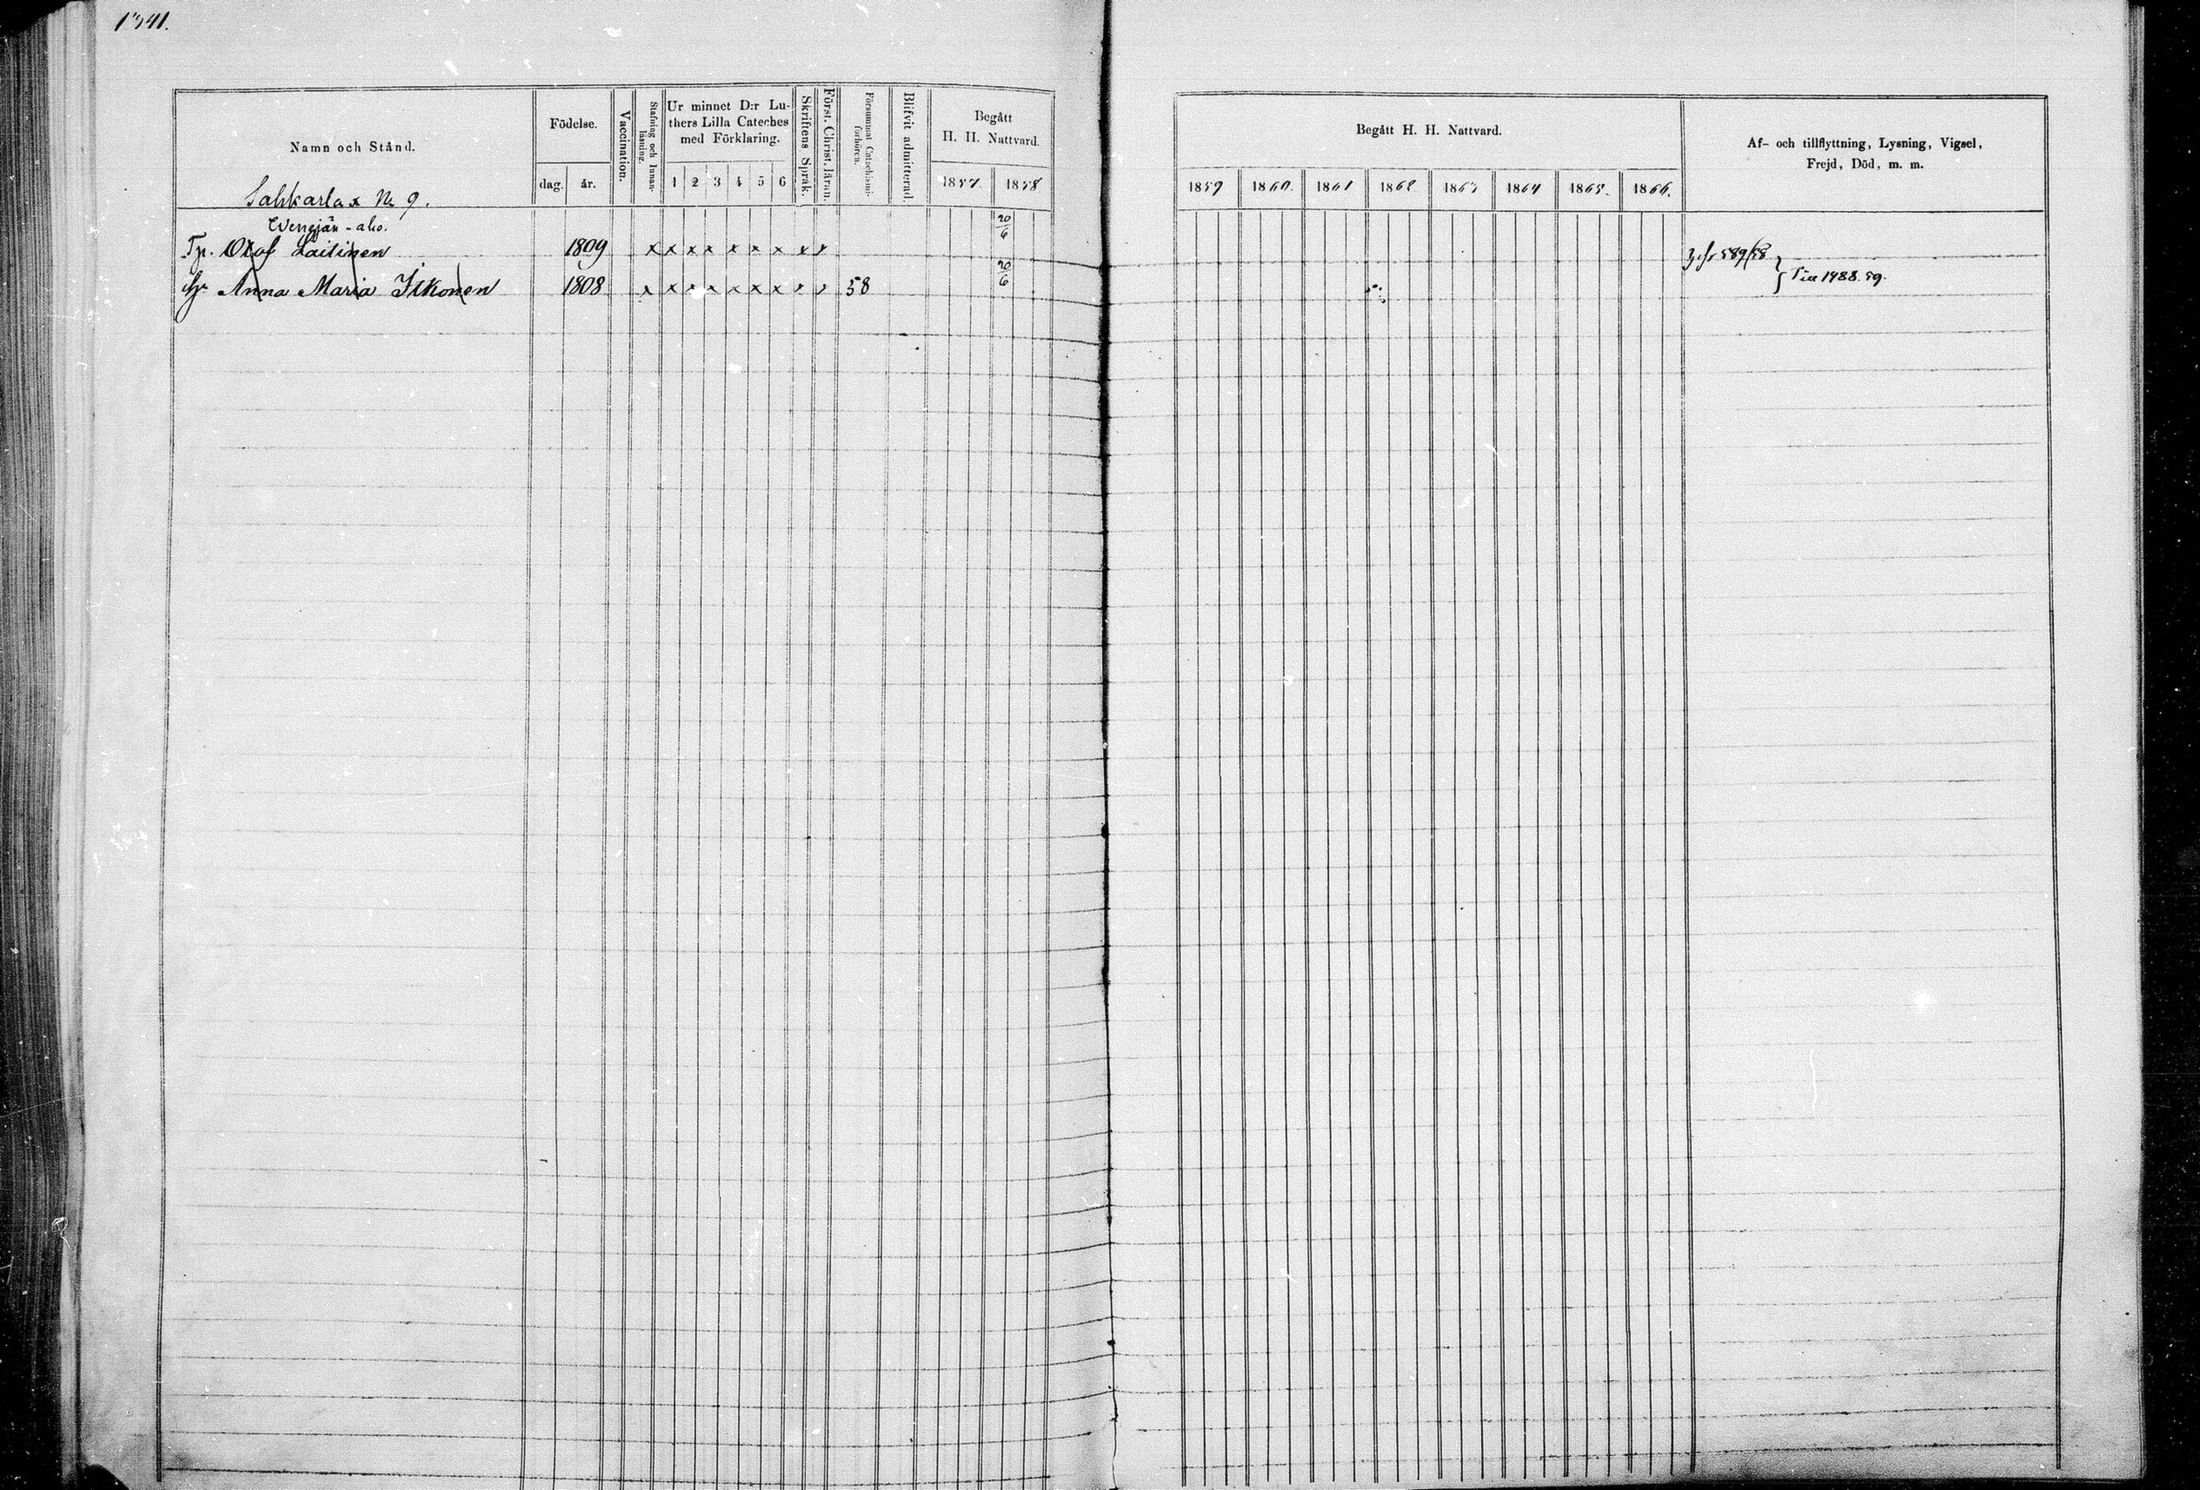 1341.
Namn och Stånd.
Födelse.
dag. år.
Vaccination.
Stafning och Innanläsning.
Ur minnet D:r Lu-
thers Lilla Cateches
med Förklaring.
1 2 3 4 5 6
Skriftens Språk.
Först. Christ. läran.
Försummat Catechismi-
förhören.
Blifvit admitterad.
Begått
H. H. Nattvard.
1857. 1858
Begått H. H. Nattvard.
1859 1860. 1861 1862 1863 1864 1865. 1866.
Af- och tillflyttning, Lysning, Vigsel,
Frejd, Död, m. m.
Sahkarlax № 9.
20/6
Tp. Olof Laitinen 1809 x x x x x x x x x 589/58
Hu Anna Maria Itkonen 1808 x x x x x x x x x 58 20/6
1488. 59.